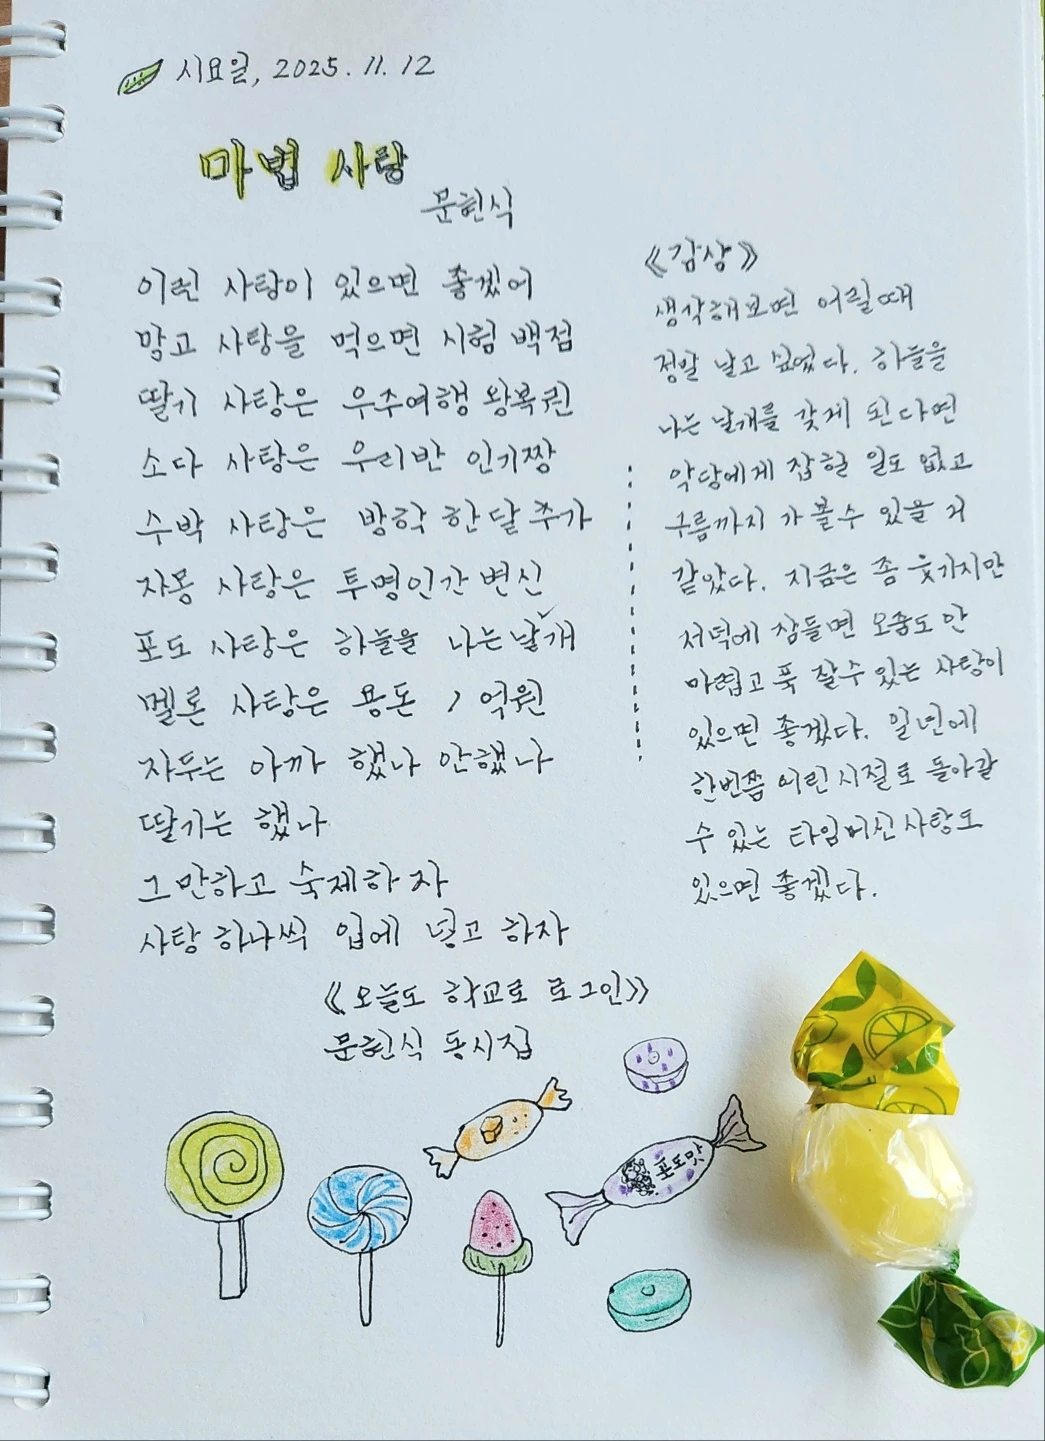 시요일, 2025. 11. 12
마법 사탕
문현식
이런 사탕이 있으면 좋겠어
망고 사탕을 먹으면 시험 백점
딸기 사탕은 우주여행 왕복권
소다 사탕은 우리반 인기짱
수박 사탕은 방학 한 달 추가
자몽 사탕은 투명인간 변신
포도 사탕은 하늘을 나는 날개
멜론 사탕은 용돈 1억원
자두는 아까 했나 안했나
딸기는 했나
그만하고 숙제하자
사탕 하나씩 입에 넣고 하자
《오늘도 학교로 로그인》
문현식 동시집
《감상》
생각해보면 어릴때
정말 날고 싶었다. 하늘을
나는 날개를 갖게 된다면
악당에게 잡힐 일도 없고
구름까지 가 볼수 있을 거
같았다. 지금은 좀 웃기지만
저녁에 잠들면 오줌도 안
마렵고 푹 잘수 있는 사탕이
있으면 좋겠다. 일년에
한번쯤 어린시절로 돌아갈
수 있는 타임머신 사탕도
있으면 좋겠다.
포도맛